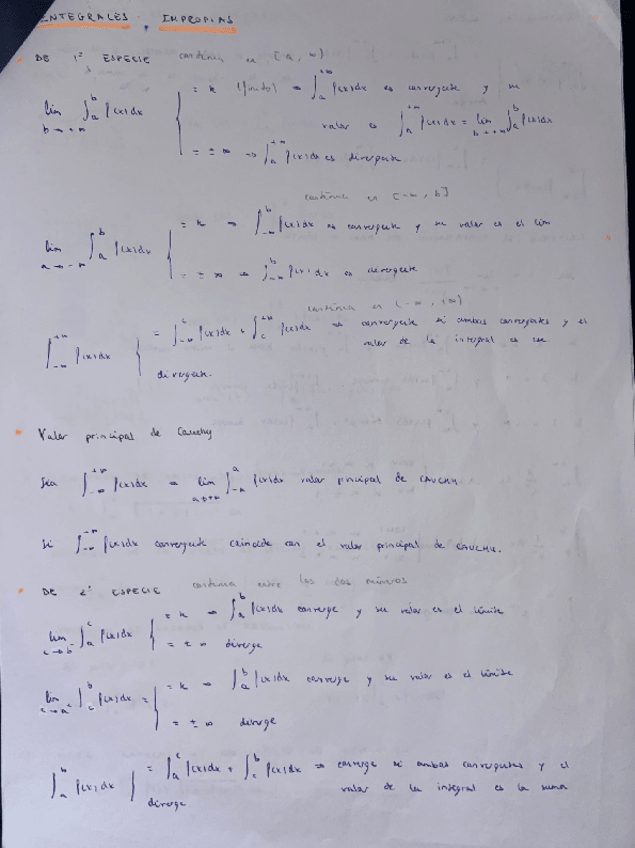 INTEGRALES IMPROPIAS
DE 1ª ESPECIE continua en [a, ∞)
lim b→+∞ ∫_a^b f(x)dx { = k (finito) ⇒ ∫_a^{+∞} f(x)dx es convergente y su
valor es ∫_a^{+∞} f(x)dx = lim b→+∞ ∫_a^b f(x)dx
= ±∞ ⇒ ∫_a^{+∞} f(x)dx es divergente
continua en [-∞, b]
lim a→-∞ ∫_a^b f(x)dx { = k ⇒ ∫_{-∞}^b f(x)dx es convergente y su valor es el lim
= ±∞ ⇒ ∫_{-∞}^b f(x)dx es divergente
continua en (-∞, +∞)
∫_{-∞}^{+∞} f(x)dx { = ∫_{-∞}^c f(x)dx + ∫_c^{+∞} f(x)dx ⇒ convergente si ambas convergentes y el
valor de la integral es
divergente.
Valor principal de Cauchy
Sea ∫_{-∞}^{+∞} f(x)dx = lim a→+∞ ∫_{-a}^a f(x)dx valor principal de CAUCHY.
Si ∫_{-∞}^{+∞} f(x)dx convergente coincide con el valor principal de CAUCHY.
DE 2ª ESPECIE continua entre los dos números
lim c→b⁻ ∫_a^c f(x)dx { = k ⇒ ∫_a^b f(x)dx converge y su valor es el límite
= ±∞ diverge
lim c→a⁺ ∫_c^b f(x)dx = { = k ⇒ ∫_a^b f(x)dx converge y su valor es el límite
= ±∞ diverge
∫_a^b f(x)dx { = ∫_a^c f(x)dx + ∫_c^b f(x)dx ⇒ converge si ambas convergentes y el
valor de la integral es la suma
diverge